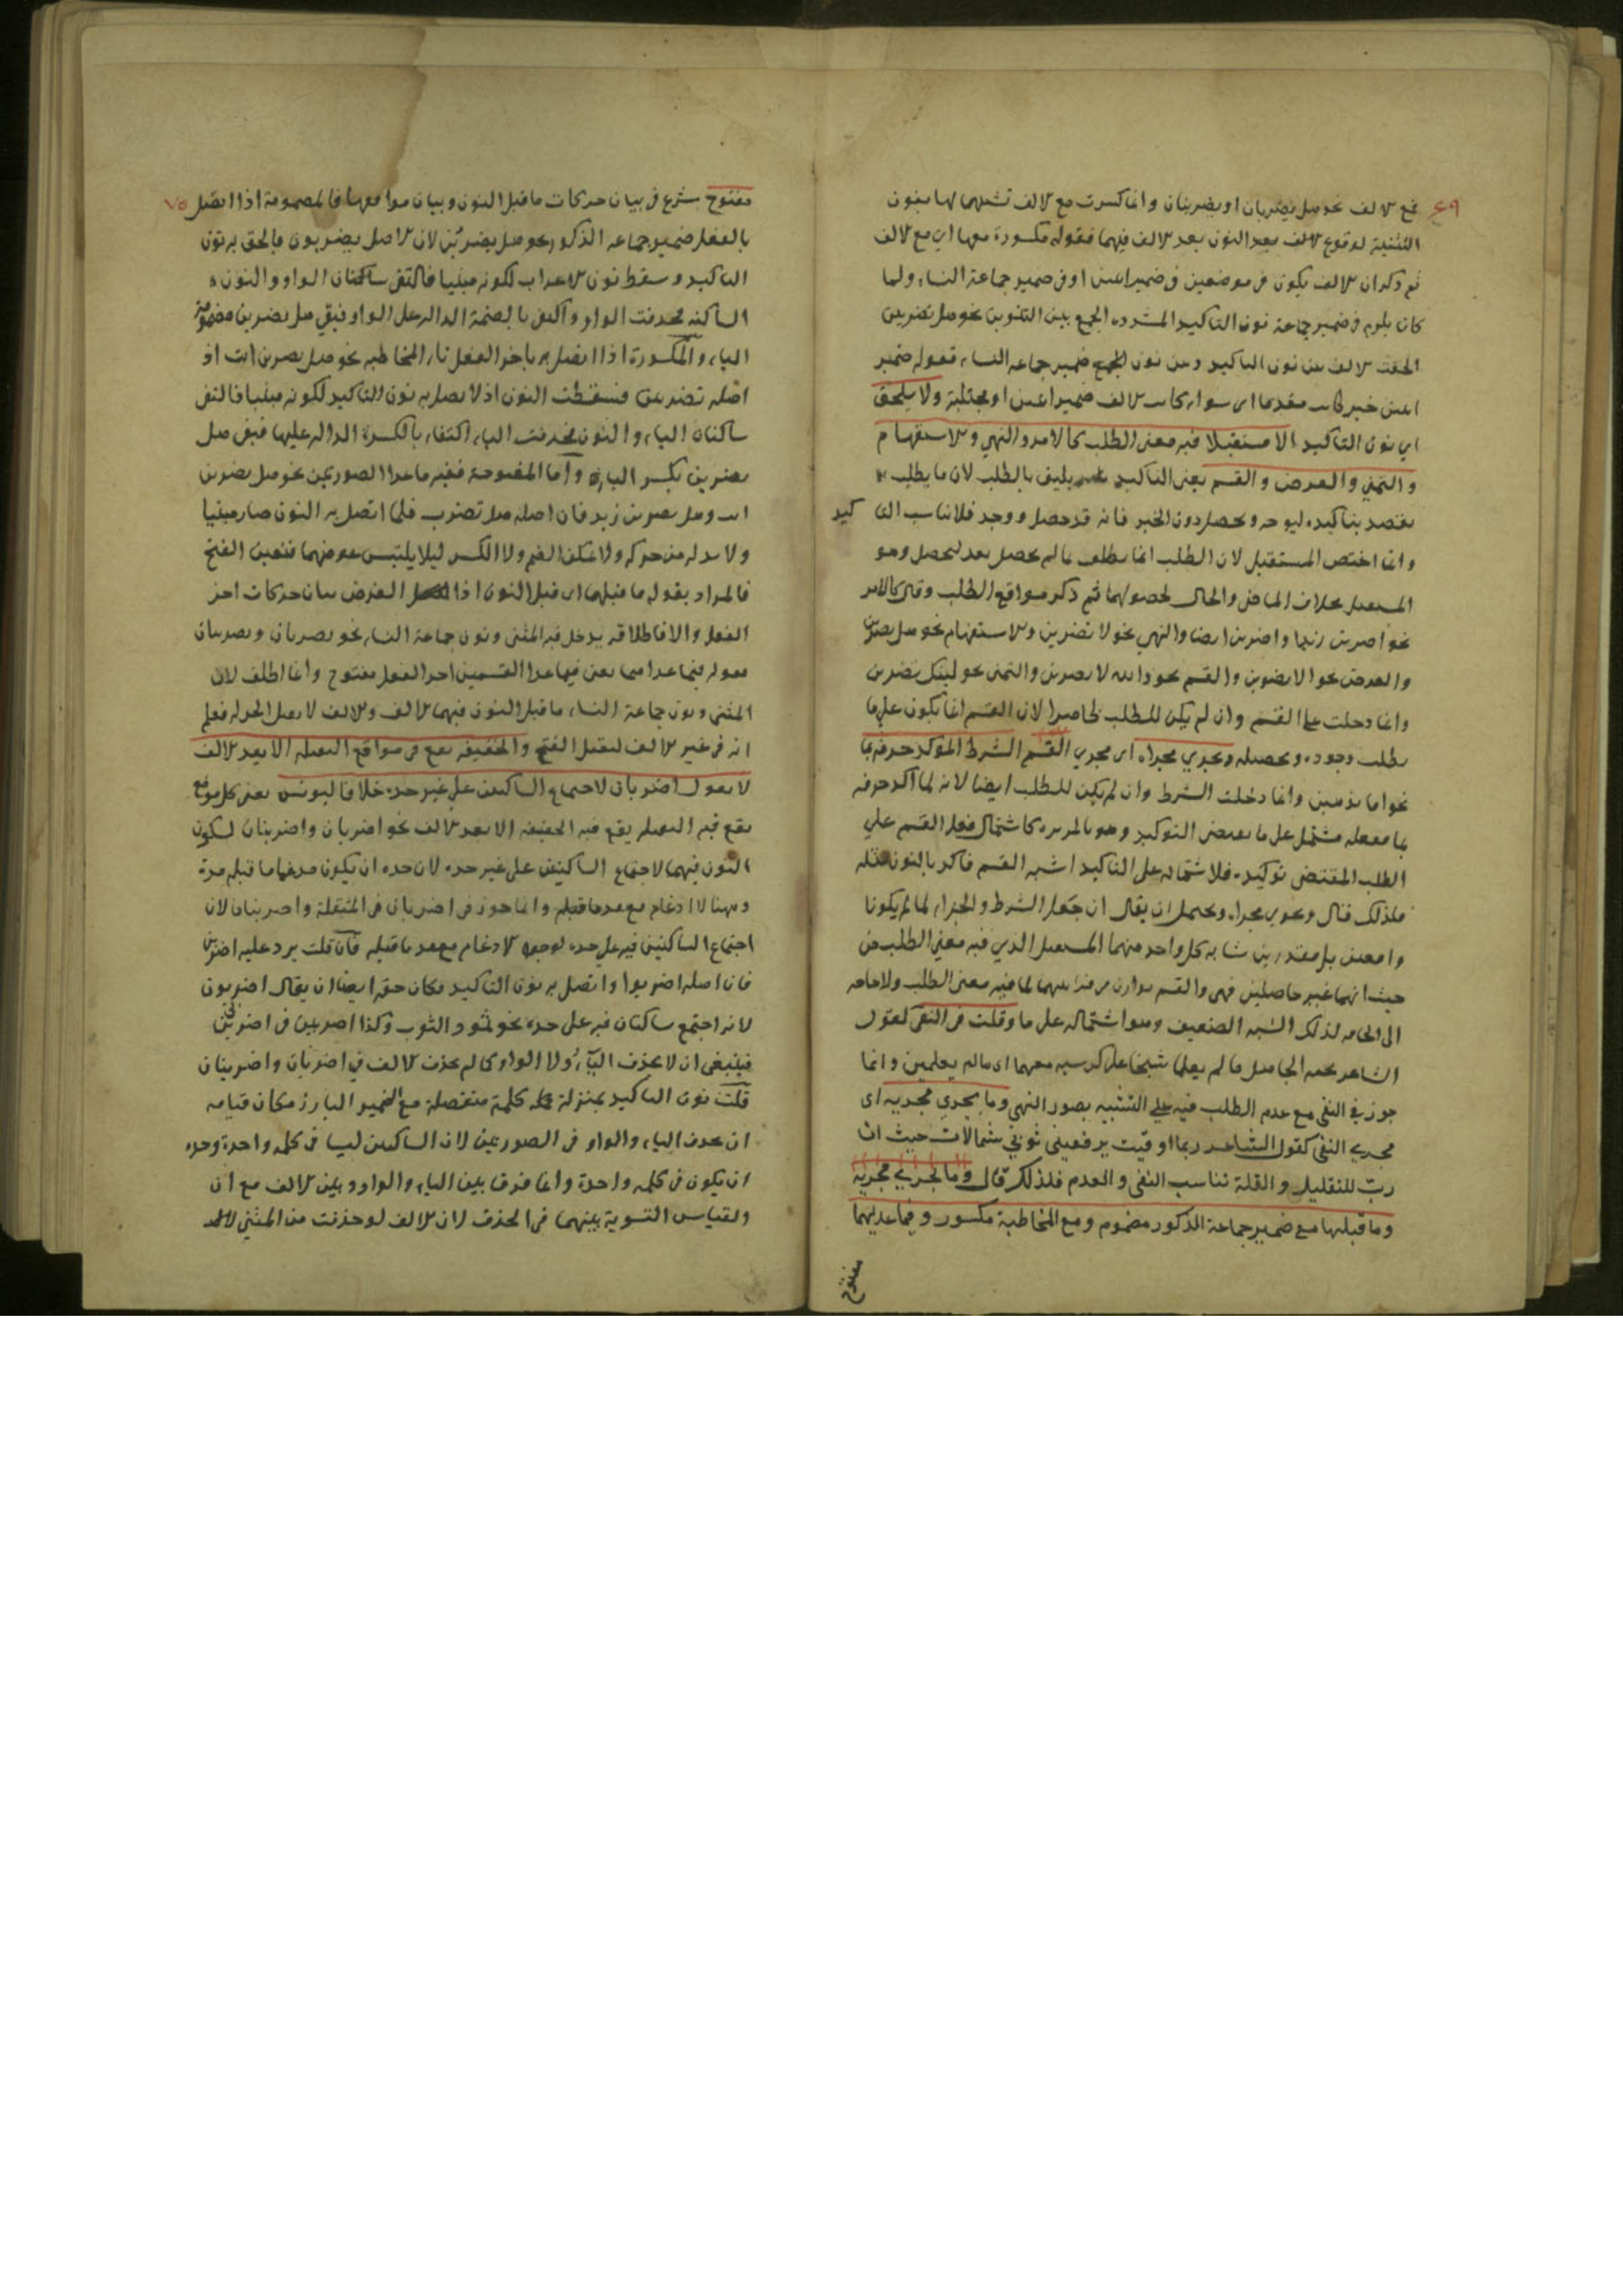 مع الالف نحو هل يضربان او يضربنان وانما كسرت مع الالف تشبيها لها بنون ٤٩
التثنية لوقوع الالف بعد النون بعد الالف فيهما فقوله مكسورة معها اي مع الالف
ثم ذكر ان الالف يكون في موضعين في ضمير اثنين او في ضمير جماعة النساء ولما
كان يلزم في ضمير جماعة نون التاكيد المشدده الجمع بين النونين نحو هل تضربن
الحقت الالف بين نون التاكيد وبين نون الجمع ضمير جماعة النساء فقوله ضمير
اثنين خبر كانت مقدما اي سواء كانت الالف ضمير اثنين او مجتلبة ولا يلحق
اي نون التاكيد الا مستقبلا فيه معنى الطلب كالامر والنهي والاستفهام
والتمني والعرض والقسم يعني التاكيد يليق بالطلب لان ما يطلب
يقصد بتاكيده ليوجد ويحصل دون الخبر فانه قد حصل ووجد فلا يناسب التا كيد
وانما اختص المستقبل لان الطلب انما يطلب ما لم يحصل بعد ليحصل وهو
المستقبل بخلاف الماضي والحال لحصولهما ثم ذكر مواقع الطلب وقال كالامر
نحو اضربن زيدا واضربن ايضا والنهي نحو لا تضربن والاستفهام نحو هل يضربن
والعرض نحو الا يضربن والقسم نحو والله لا يضربن والتمني نحو ليتك تضربن
وانما دخلت على القسم وان لم يكن للطلب خاصرا لان القسم انما يكون على ما
يطلب وجوده وتحصيله ويجري مجراه اي مجري القسم الشرط المؤكد حرفه بما
نحو اما تذهبن وانما دخلت الشرط وان لم يكن للطلب ايضا لانه لما اكد حرفه
بما معمله مشتمل على ما يقتضي التوكيد وهو كاشتمال فعل القسم علي
الطلب المقتضي توكيده فلاشتماله على التاكيد اشبه القسم فاكد بالنون مثله
فلذلك قال ويجري مجراه ويحتمل ان يقال ان جعل الشرط والجزاء لما لم يكونا
واقعين بل مقدرين شابه كل واحد منهما المستقبل الذي فيه معنى الطلب من
حيث انهما غير حاصلين فهي والقسم لما فيه معنى الطلب ولا حاجة
الى الحاقه لذلك الشبه الضعيف وهو اشتماله على ما وقلت في النفي كقول
الشاعر يحسبه الجاهل ما لم يعلما شيخا على كرسيه معمما اي ما لم يعلمن وانما
جوز في النفي مع عدم الطلب فيه علي التشبيه بصور النهي وما يجري مجريه اي
مجري النفي كقول الشاعر ربما اوفيت يرفعيني ثوبي شمالات حيث ان
ربّ للتقليل والقلة تناسب النفي والعدم فلذلك قال وما يجري مجريه
وما قبلها مع ضمير جماعة الذكور مضموم ومع المخاطبة مكسور وفيما عديهما
مفتوح
مفتوح شرع في بيان حركات ما قبل النون وبيان مواقعها فالمضمومة اذا اتصل ٧٥
بالفعل ضمير جماعه الذكور نحو هل يضربن لان الاصل يضربون فالحق به نون
التاكيد وسقط نون الاعراب لكونه مبنيا فالتقى ساكنان الواو والنون
الساكنه فحذفت الواو واكتفى بالضمة الداله على الواو فبقي هل يضربن مضمومة
الباء والمكسورة اذا اتصل به باخر الفعل تاء المخاطبه نحو هل تضربن انت اذ
اصله تضربين فسقطت النون اذا اتصل به نون التاكيد لكونه مبنيا فالتقى
ساكنان الياء والنون فحذفت الياء اكتفاء بالكسرة الداله عليها فبقى هل
تضربن بكسر الباء واما المفتوحة ففيه ما عدا الصورتين نحو هل يضربن
انت وهل يضربن زيد فان اصله هل تضرب فلما اتصل به النون صار مبنيا
ولا بد له من حركه ولا يمكن الضم ولا الكسر ليلا يلتبس فتعين الفتح
فالمراد بقوله ما قبلها اي قبل النون اذا الغرض بيان حركات اخر
الفعل والا فاطلاقه يدخل فيه المثنى ونون جماعة النساء نحو يضربان ويضربنان
فقوله فيما عداهما يعني فيما عدا القسمين اخر الفعل مفتوح وانما اطلق لان
المثنى ونون جماعة النساء ما قبل النون فيهما الالف والالف لا يقبل الحركه فعلم
انه في غير الالف ليقبل الفتح والخفيفه تقع في مواقع الثقيله الا بعد الالف
لا تقول اضربان لاجتماع الساكنين على غير حده خلافا ليونس يعني كل موقع
يقع فيه الثقيله يقع فيه الخفيفه الا بعد الالف نحو اضربان واضربنان لسكون
النون فيهما لاجتماع الساكنين على غير حده لان حده ان يكون مدغما ما قبله مدة
وههنا لا ادغام مع مد ما قبله وانما جوز في اضربان في المثقلة واضربنان لان
اجتماع الساكنين فيه على حده لوجود الادغام مع مد ما قبله فان قلت يرد عليه اضربن
فان اصله اضربوا واتصل به نون التاكيد فكان حقه ايضا ان يقال اضربون
لانه اجتمع ساكنان فيه على حده نحو تمود الثوب وكذا اضربين في اضربن
فينبغي ان لا يحذف الياء ولا الواو كما لم يحذف الالف في اضربان واضربنان
قلت نون التاكيد بمنزلة كلمة منفصلة مع الضمير البارز فكان قياسه
ان يحذف الياء والواو في الصورتين لان الساكنين ليسا في كلمه واحدة وحده
ان يكون في كلمه واحدة وانما فرق بين الياء والواو وبين الالف مع ان
القياس التسوية بينهما في الحذف لان الالف لو حذفت من المثنى